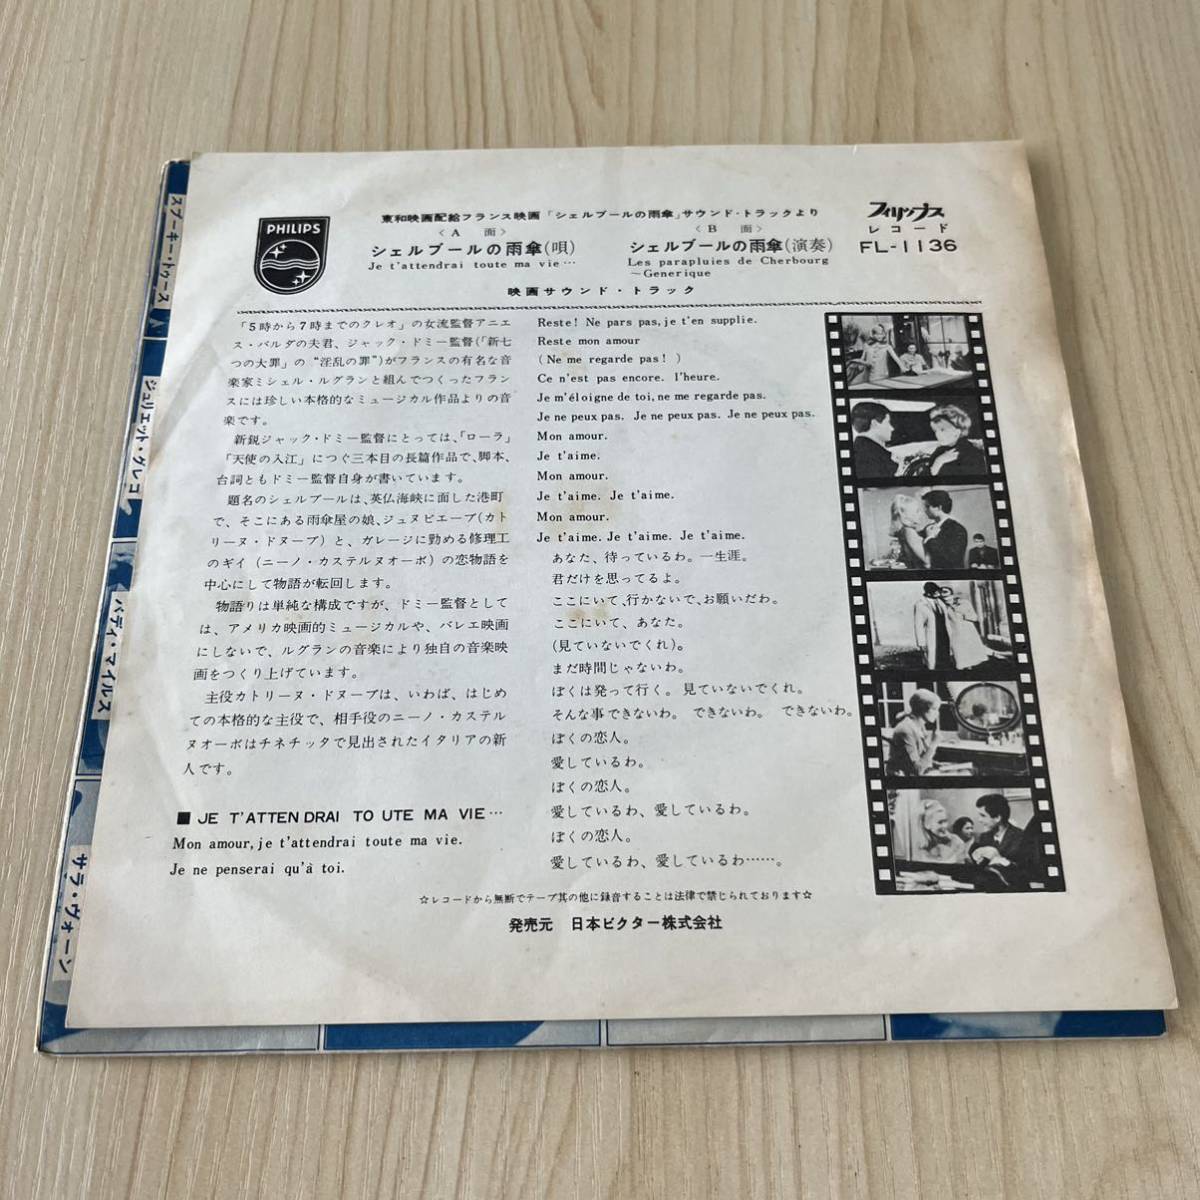 東和映画配給フランス映画「シェルブールの雨傘」サウンド・トラックより
PHILIPS
〈A 面〉
シェルブールの雨傘(唄)
Je t'attendrai toute ma vie…
〈B 面〉
シェルブールの雨傘(演奏)
Les parapluies de Cherbourg
〜Generique
映画サウンド・トラック
フィリップス
レコード
FL-1136
「5時から7時までのクレオ」の女流監督アニエ
ス・バルダの夫君、ジャック・ドミー監督(「新七
つの大罪」の“淫乱の罪”)がフランスの有名な音
楽家ミシェル・ルグランと組んでつくったフラン
スには珍しい本格的なミュージカル作品よりの音
楽です。
新鋭ジャック・ドミー監督にとっては、「ローラ」
「天使の入江」につぐ三本目の長篇作品で、脚本、
台詞ともドミー監督自身が書いています。
題名のシェルブールは、英仏海峡に面した港町
で、そこにある雨傘屋の娘、ジュヌビエーブ(カト
リーヌ・ドヌーブ)と、ガレージに勤める修理工
のギイ(ニーノ・カステルヌオーボ)の恋物語を
中心にして物語が転回します。
物語りは単純な構成ですが、ドミー監督として
は、アメリカ映画的ミュージカルや、バレエ映画
にしないで、ルグランの音楽により独自の音楽映
画をつくり上げています。
主役カトリーヌ・ドヌーブは、いわば、はじめ
ての本格的な主役で、相手役のニーノ・カステル
ヌオーボはチネチッタで見出されたイタリアの新
人です。
■ JE T'ATTEN DRAI TO UTE MA VIE…
Mon amour, je t'attendrai toute ma vie.
Je ne penserai qu'à toi.
Reste! Ne pars pas, je t'en supplie.
Reste mon amour
(Ne me regarde pas!)
Ce n'est pas encore. l'heure.
Je m'éloigne de toi, ne me regarde pas.
Je ne peux pas. Je ne peux pas. Je ne peux pas.
Mon amour.
Je t'aime.
Mon amour.
Je t'aime. Je t'aime.
Mon amour.
Je t'aime. Je t'aime. Je t'aime.
あなた、待っているわ。一生涯。
君だけを思ってるよ。
ここにいて、行かないで、お願いだわ。
ここにいて、あなた。
(見ていないでくれ)。
まだ時間じゃないわ。
ぼくは発って行く。見ていないでくれ。
そんな事できないわ。できないわ。できないわ。
ぼくの恋人。
愛しているわ。
ぼくの恋人。
愛しているわ、愛しているわ。
ぼくの恋人。
愛しているわ、愛しているわ……。
☆レコードから無断でテープ其の他に録音することは法律で禁じられております☆
発売元 日本ビクター株式会社
スプーキー・トゥース
ジュリエット・グレコ
バディ・マイルス
サラ・ヴォーン